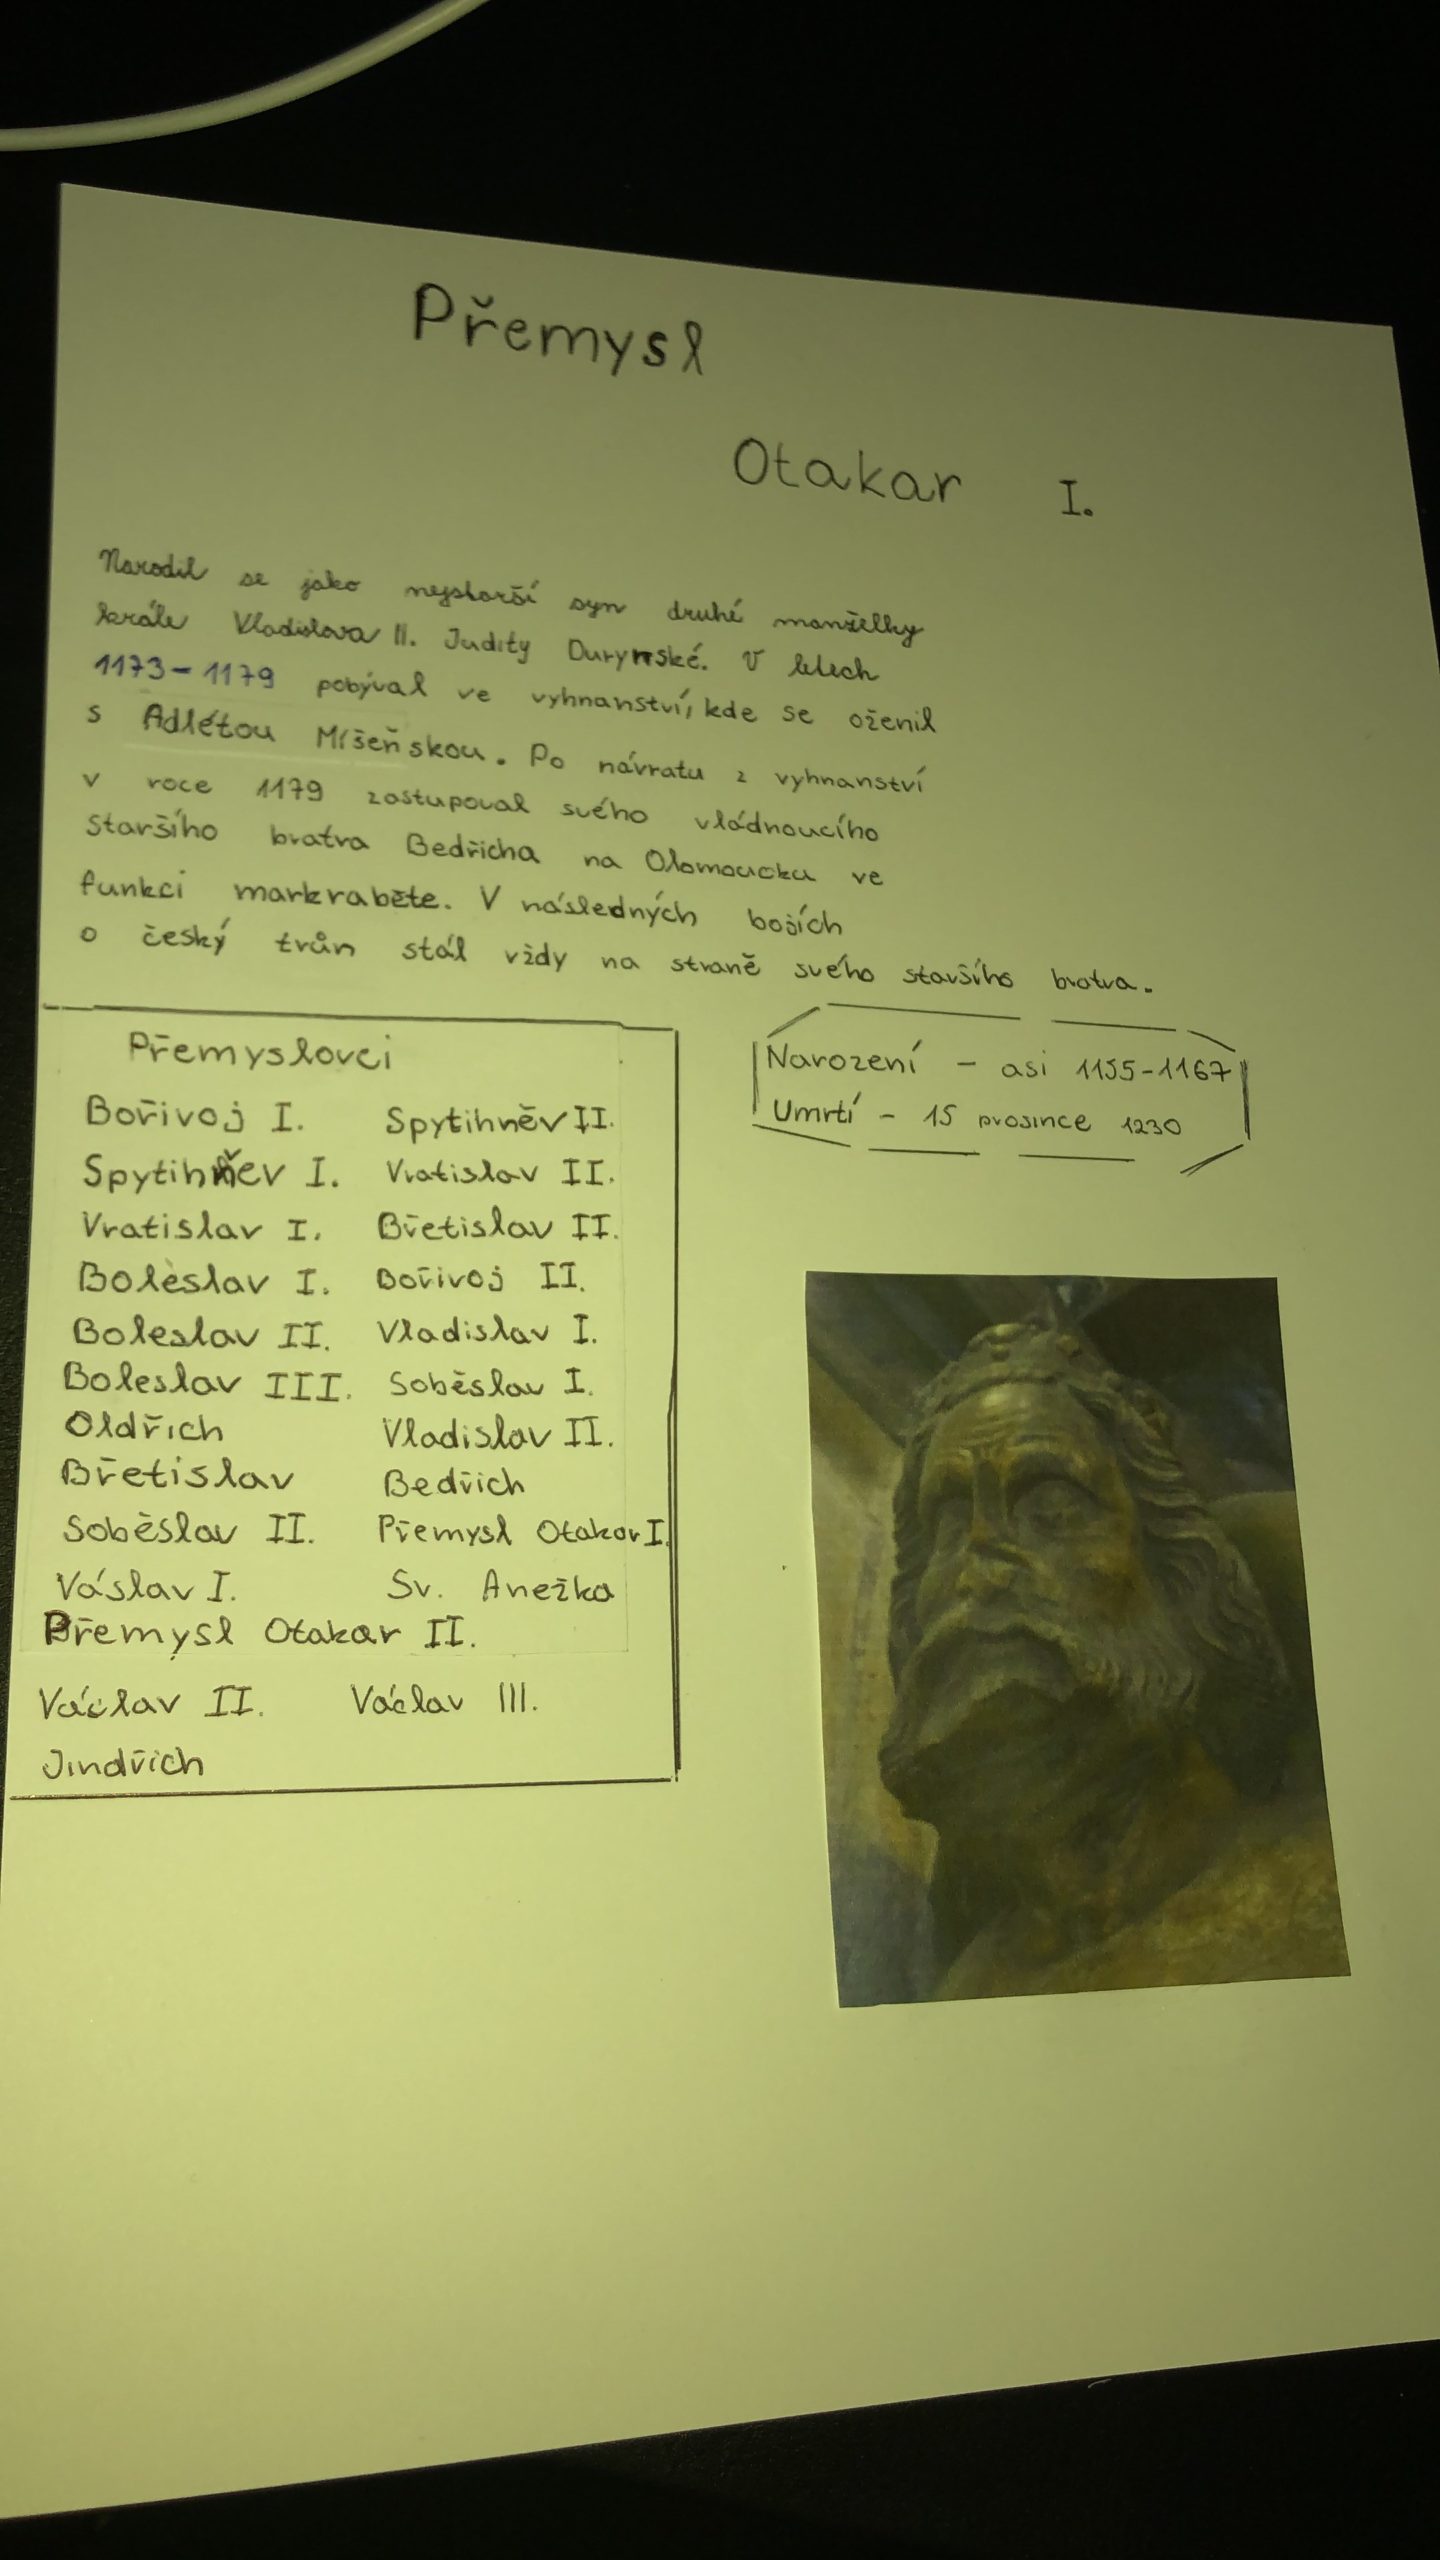 Přemysl
Otakar I.
Narodil se jako nejstarší syn druhé manželky
krále Vladislava II. Judity Durynské. V letech
1173-1179 pobýval ve vyhnanství, kde se oženil
s Adlétou Míšeňskou. Po návratu z vyhnanství
v roce 1179 zastupoval svého vládnoucího
staršího bratra Bedřicha na Olomoucku ve
funkci markraběte. V následných bojích
o český trůn stál vždy na straně svého staršího bratra.
Narození - asi 1155-1167
Umrtí - 15 prosince 1230
Přemyslovci
Bořivoj I. Spytihněv II.
Spytihněv I. Vratislav II.
Vratislav I. Břetislav II.
Boleslav I. Bořivoj II.
Boleslav II. Vladislav I.
Boleslav III. Soběslav I.
Oldřich Vladislav II.
Břetislav Bedřich
Soběslav II. Přemysl Otakar I.
Váslav I. Sv. Anežka
Přemysl Otakar II.
Václav II. Václav III.
Jindřich